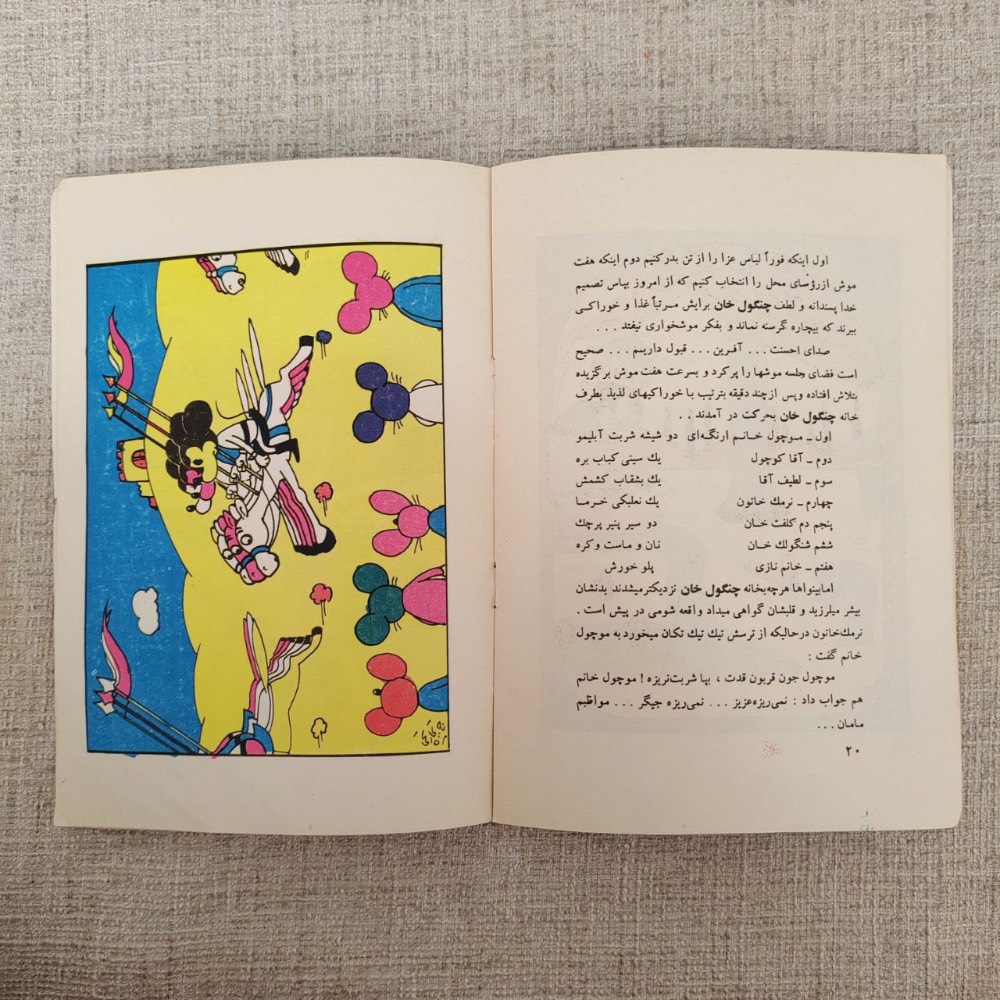 اول اینکه فوراً لباس عزا را از تن بدرکنیم دوم اینکه هفت
موش ازرؤسای محل را انتخاب کنیم که از امروز بپاس تصمیم
خدا پسندانه و لطف چنگول خان برایش مرتباً غذا و خوراکی
ببرند که بیچاره گرسنه نماند و بفکر موشخواری نیفتد . . .
صدای احسنت . . . آفرین . . . قبول داریم . . . صحیح
است فضای جلسه موشها را پرکرد و بسرعت هفت موش برگزیده
بتلاش افتاده وپس ازچند دقیقه بترتیب با خوراکیهای لذیذ بطرف
خانه چنگول خان بحرکت در آمدند . .
اول ـ موچول خانم ارنگه‌ای دو شیشه شربت آبلیمو
دوم ـ آقا کوچول یك سینی کباب بره
سوم ـ لطیف آقا یك بشقاب کشمش
چهارم ـ نرمك خاتون یك نعلبکی خرما
پنجم دم کلفت خان دو سیر پنیر پرچك
ششم شنگولك خان نان و ماست وکره
هفتم ـ خانم نازی پلو خورش
امابینواها هرچه‌بخانه چنگول خان نزدیکترمیشدند بدنشان
بیشر میلرزید و قلبشان گواهی میداد واقعه شومی در پیش است .
نرمك‌خاتون درحالیکه از ترسش تیك تیك تکان میخورد به موچول
خانم گفت :
موچول جون قربون قدت ، بپا شربت‌نریزه ! موچول خانم
هم جواب داد : نمی‌ریزه‌عزیز . . . نمی‌ریزه جیگر . . . مواظبم
مامان . . .
۲۰